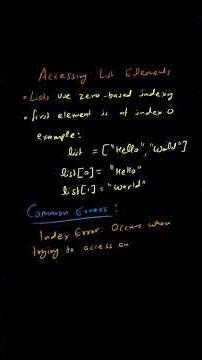 Accessing List Elements
• Lists use zero-based indexing
• first element is at index 0
example:
list = ["Hello", "World"]
list[0] = "Hello"
list[1] = "World"
Common Errors:
Index Error: Occurs when
trying to access an